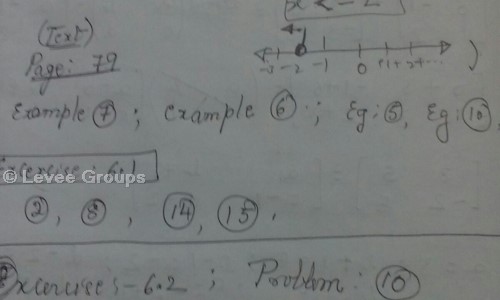 x < -2
(Text)
Page: 79
-3 -2 -1 0 +1 +2 +... )
Example 7 ; example 6 ; Eg: 5, Eg: 10,
Excercise: 6.1
© Levee Groups
2, 8, 14, 15.
Excercise:- 6.2 ; Problem: 10